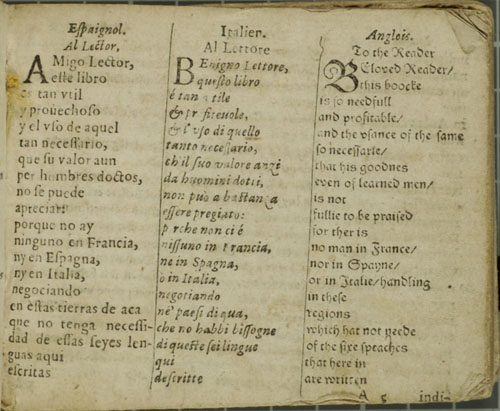 Espaignol.
Al Lector,
AMigo Lector,
este libro
es tan vtil
y prouechoso
y el vso de aquel
tan necessario,
que su valor aun
per hombres doctos,
no se puede
apreciar:
porque no ay
ninguno en Francia,
ny en Espagna,
ny en Italia,
negociando
en estas tierras de aca
que no tenga necessi-
dad de essas seyes len-
guas aqui
escritas
Italien.
Al Lettore
BEnigno Lettore,
questo libro
é tan vtile
& profiteuole,
& l'vso di quello
tanto necessario,
ch'il suo valore anzi
da huomini dotti,
non può a bastanza
essere pregiato:
perche non ci é
nissuno in Francia,
ne in Spagna,
o in Italia,
negotiando
ne' paesi di qua,
che no habbi bisogne
di queste sei lingue
qui
descritte
Anglois.
To the Reader
BEloved Reader/
this boocke
is so needfull
and profitable/
and the vsance of the same
so necessarie/
that his goodnes
even of learned men/
is not
fullie to be praised
for ther is
no man in France/
nor in Spayne/
or in Italie/handling
in these
regions
which hat not neede
of the sixe speaches
that here in
are written
A 5 indi-